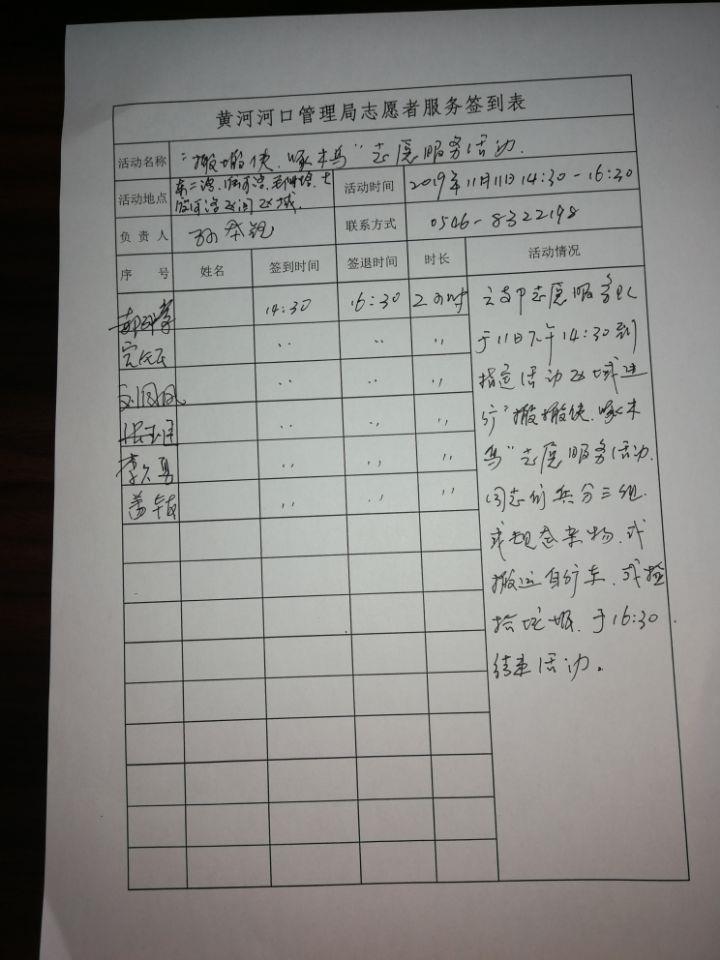 黄河河口管理局志愿者服务签到表
活动名称 "搬搬侠、啄木鸟"志愿服务活动.
活动地点
活动时间 2019年11月11日14:30-16:30
负责人 孙
联系方式 0546-8322198
序号 姓名 签到时间 签退时间 时长 活动情况
14:30 16:30 2小时
〃 〃 〃
刘凤凤 〃 〃 〃
〃 〃 〃
李久勇 〃 〃 〃
盖 〃 〃 〃
支部志愿服务队
于11日下午14:30到
指定活动区域进
行"搬搬侠、啄木
鸟"志愿服务活动.
同志们兵分三组.
或规整杂物、或
搬运自行车、或捡
拾垃圾、于16:30
结束活动。